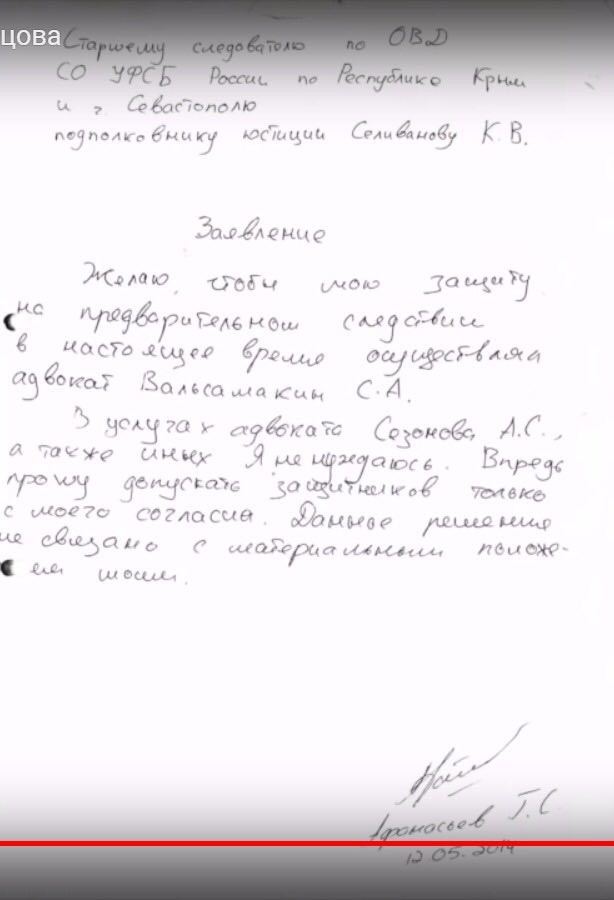 цова
Старшему следователю по ОВД
СО УФСБ России по Республике Крым
и г. Севастополю
подполковнику юстиции Селиванову К.В.
Заявление
Желаю, чтобы мою защиту
на предварительном следствии
в настоящее время осуществлял
адвокат Вальсамакин С.А.
В услугах адвоката Сезонова А.С.,
а также иных Я не нуждаюсь. Впредь
прошу допускать защитников только
с моего согласия. Данное решение
не связано с материальным положе-
ем моим.
Афанасьев Г.С.
12.05.2014